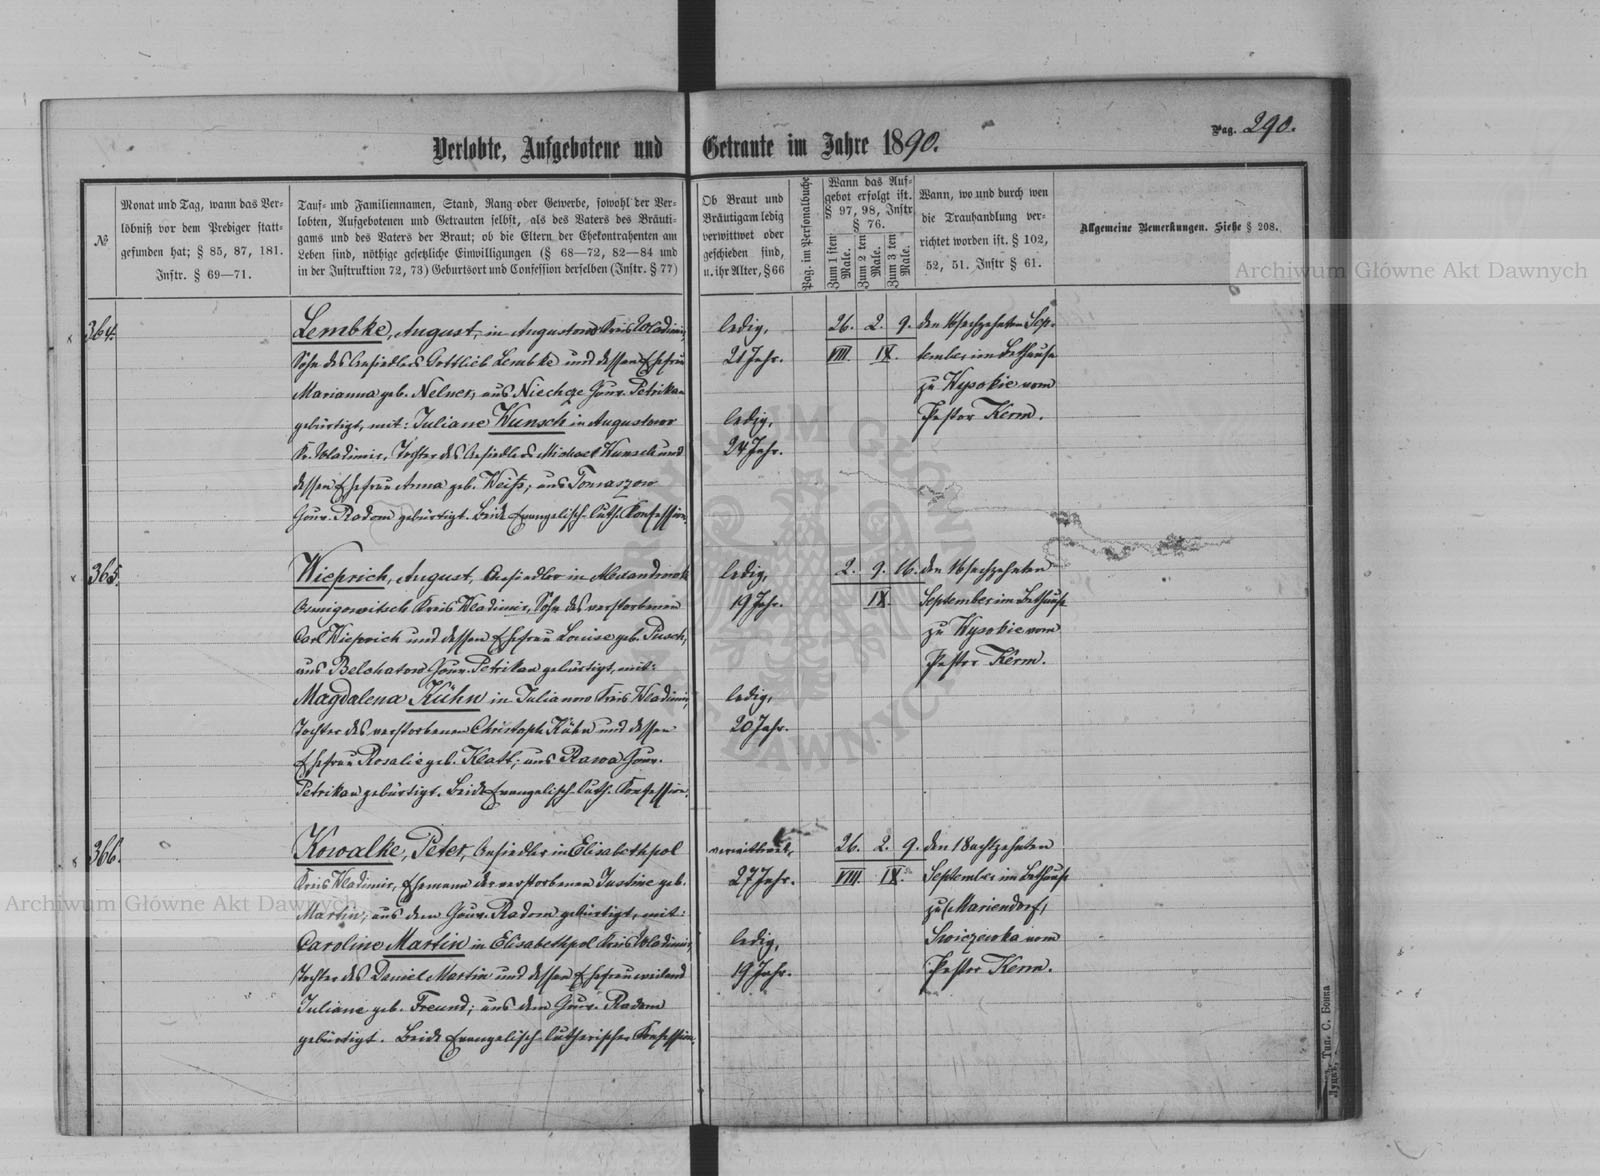 Pag. 290.
Verlobte, Aufgebotene und Getraute im Jahre 1890.
№
Monat und Tag, wann das Ver-
löbniß vor dem Prediger statt-
gefunden hat; § 85, 87, 181.
Instr. § 69—71.
Tauf- und Familiennamen, Stand, Rang oder Gewerbe, sowohl der Ver-
lobten, Aufgebotenen und Getrauten selbst, als des Vaters des Bräuti-
gams und des Vaters der Braut; ob die Eltern der Ehekontrahenten am
Leben sind, nöthige gesetzliche Einwilligungen (§ 68—72, 82—84 und
in der Instruktion 72, 73) Geburtsort und Confession derselben (Instr. § 77)
Ob Braut und
Bräutigam ledig
verwittwet oder
geschieden sind,
u. ihr Alter, § 66
Pag. im Personalbuche
Wann das Auf-
gebot erfolgt ist.
§ 97, 98, Instr
§ 76.
Zum 1 sten
Male.
Zum 2 ten
Male.
Zum 3 ten
Male.
Wann, wo und durch wen
die Trauhandlung ver-
richtet worden ist. § 102,
52, 51. Instr § 61.
Allgemeine Bemerkungen. Siehe § 208.
Archiwum Główne Akt Dawnych
364.
Lembke, August, in Augustow Kreis Wladimir,
Sohn des Ansiedlers Gottlieb Lembke und dessen Ehefrau
Marianna geb. Nelner, aus Gouv. Petrikau
gebürtigt, mit: Juliane Wunsch in Augustow
Kr. Wladimir, Tochter des Ansiedlers Michael Wunsch und
dessen Ehefrau Anna geb. Weiß, aus Tomaszow
Gouv. Radom gebürtigt. Beide Evangelisch-Luth. Konfession.
ledig,
21 Jahr.
ledig,
24 Jahr.
26. 2. 9.
VIII IX.
den 16 sechzehnten Sep-
tember im Bethause
zu Wysokie vom
Pastor Kerm.
365.
Wieprich, August, Ansiedler in Alexandrowka
Kreis Wladimir, Sohn des verstorbenen
Carl Wieprich und dessen Ehefrau Louise geb. Pusch,
aus Belchatow Gouv. Petrikau gebürtigt, mit:
Magdalena Kühn in Julianow Kreis Wladimir,
Tochter des verstorbenen Christoph Kühn und dessen
Ehefrau Rosalie geb. Klatt, aus Rawa Gouv.
Petrikau gebürtigt. Beide Evangelisch-Luth. Konfession.
ledig,
19 Jahr.
ledig,
20 Jahr.
2. 9. 16.
IX.
den 16 sechzehnten
September im Bethause
zu Wysokie vom
Pastor Kerm.
366.
Kowalke, Peter, Ansiedler in Elisabethpol
Kreis Wladimir, Ehemann der verstorbenen Justine geb.
Martin, aus dem Gouv. Radom gebürtigt, mit:
Caroline Martin in Elisabethpol Kreis Wladimir,
Tochter des Daniel Martin und dessen Ehefrau weiland
Juliane geb. Freund; aus dem Gouv. Radom
gebürtigt. Beide Evangelisch-Lutherischer Konfession.
verwittwet,
27 Jahr.
ledig,
19 Jahr.
26. 2. 9.
VIII IX.
den 18 achtzehnten
September im Bethause
zu (Mariendorf)
Swiczewka vom
Pastor Kerm.
Archiwum Główne Akt Dawnych
Луцкъ, Тип. С. Бонка